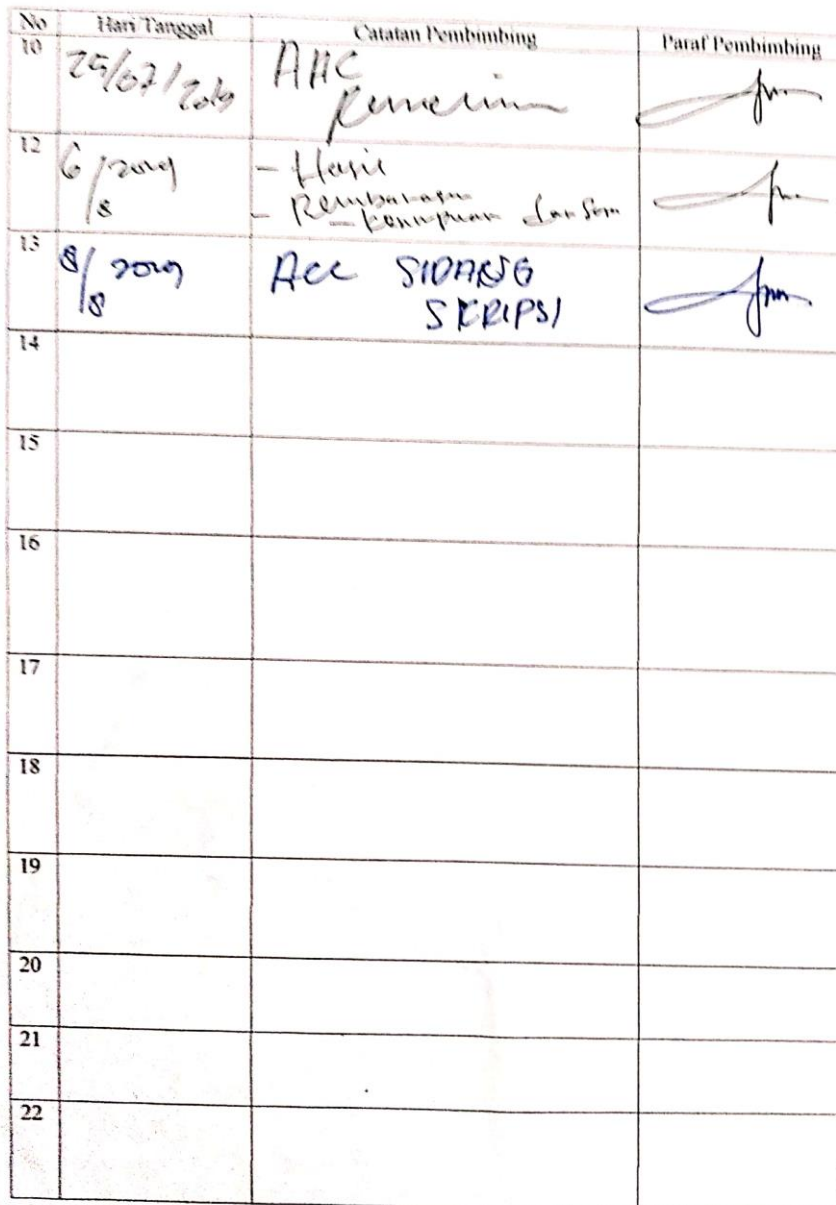 No Hari Tanggal Catatan Pembimbing Paraf Pembimbing
10 25/07/2019 ACC
Penelitian
12 6/8 2019 - Hasil
- Pembahasan
- Kesimpulan dan Saran
13 8/8 2019 Acc SIDANG
SKRIPSI
14
15
16
17
18
19
20
21
22